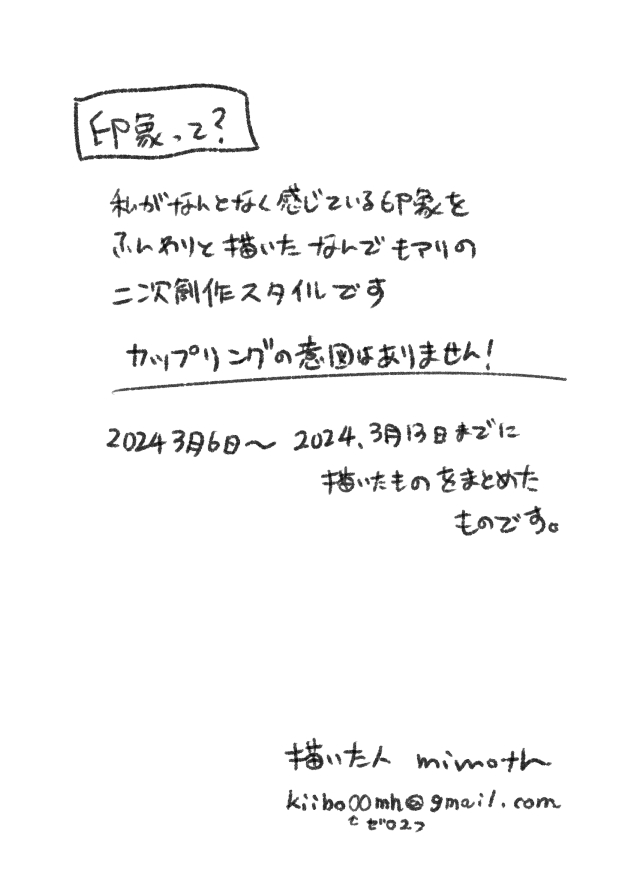 印象って?
私がなんとなく感じている印象を
ふんわりと描いたなんでもアリの
二次創作スタイルです
カップリングの意図はありません!
2024 3月6日〜 2024.3月13日までに
描いたものをまとめた
ものです。
描いた人 mimoth
kiibo00mh@gmail.com
ゼロ2つ